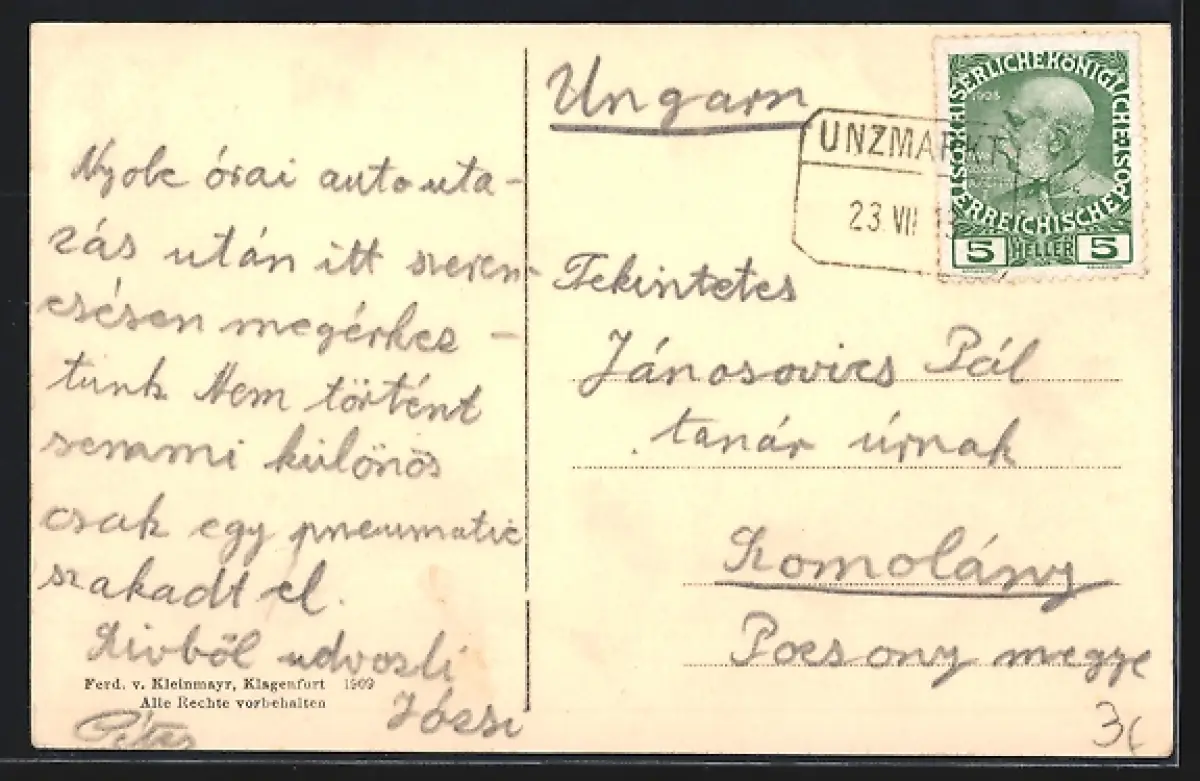 Nyolc órai autouta-
zás után itt szeren-
csésen megérkez-
tünk Nem történt
semmi különös
csak egy pneumatic
szakadt el.
Szivből udvozli
Józsi
Péter
Ferd. v. Kleinmayr, Klagenfurt 1909
Alle Rechte vorbehalten
Ungarn
UNZMARKT
23. VII 13
KAISERLICHE KÖNIGLICHE
ÖSTERREICHISCHE POST
1908
5 HELLER 5
Tekintetes
Jánosovics Pál
tanár úrnak
Szomolány
Pozsony megye